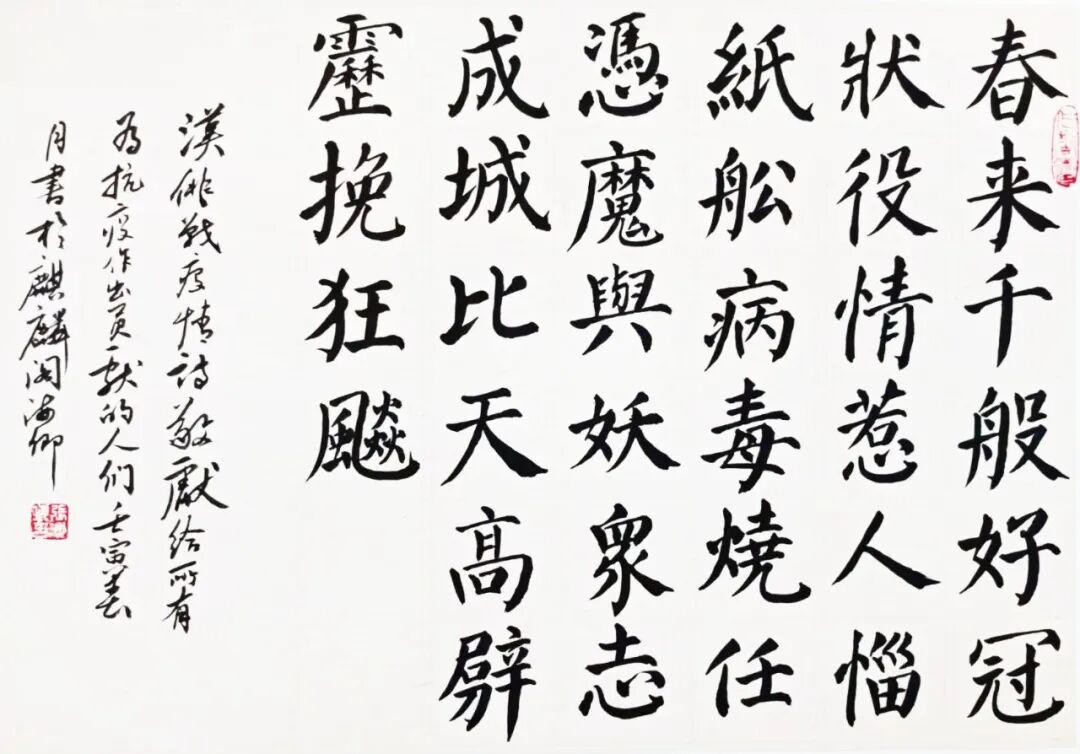 春来千般好冠
狀役情惹人惱
紙船病毒燒任
憑魔與妖眾志
成城比天高劈
靂挽狂飈
漢俳戰疫情詩敬獻給所有
為抗疫作出貢獻的人们壬寅春
月書於麒麟閣海卿